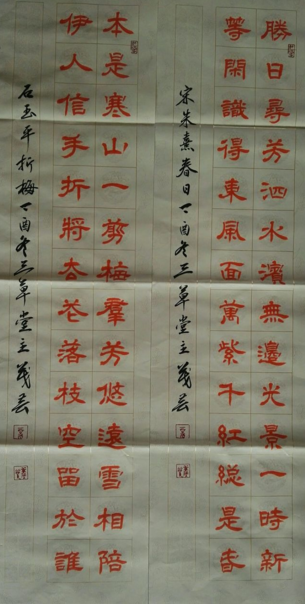 勝日尋芳泗水濱無邊光景一時新
等閑識得東風面萬紫千紅緫是春
宋朱熹春日丁酉冬三草堂主義芸
本是寒山一剪梅羣芳悠遠雪相陪
伊人信手折將去花落枝空留於誰
石玉平折梅丁酉冬三草堂主義芸